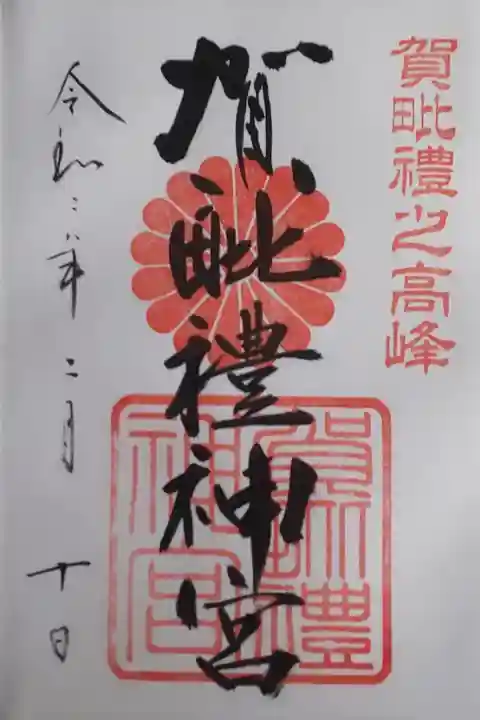 賀毗禮之高峰
賀毗禮神宮
令和二年二月十日
賀毗禮
神宮